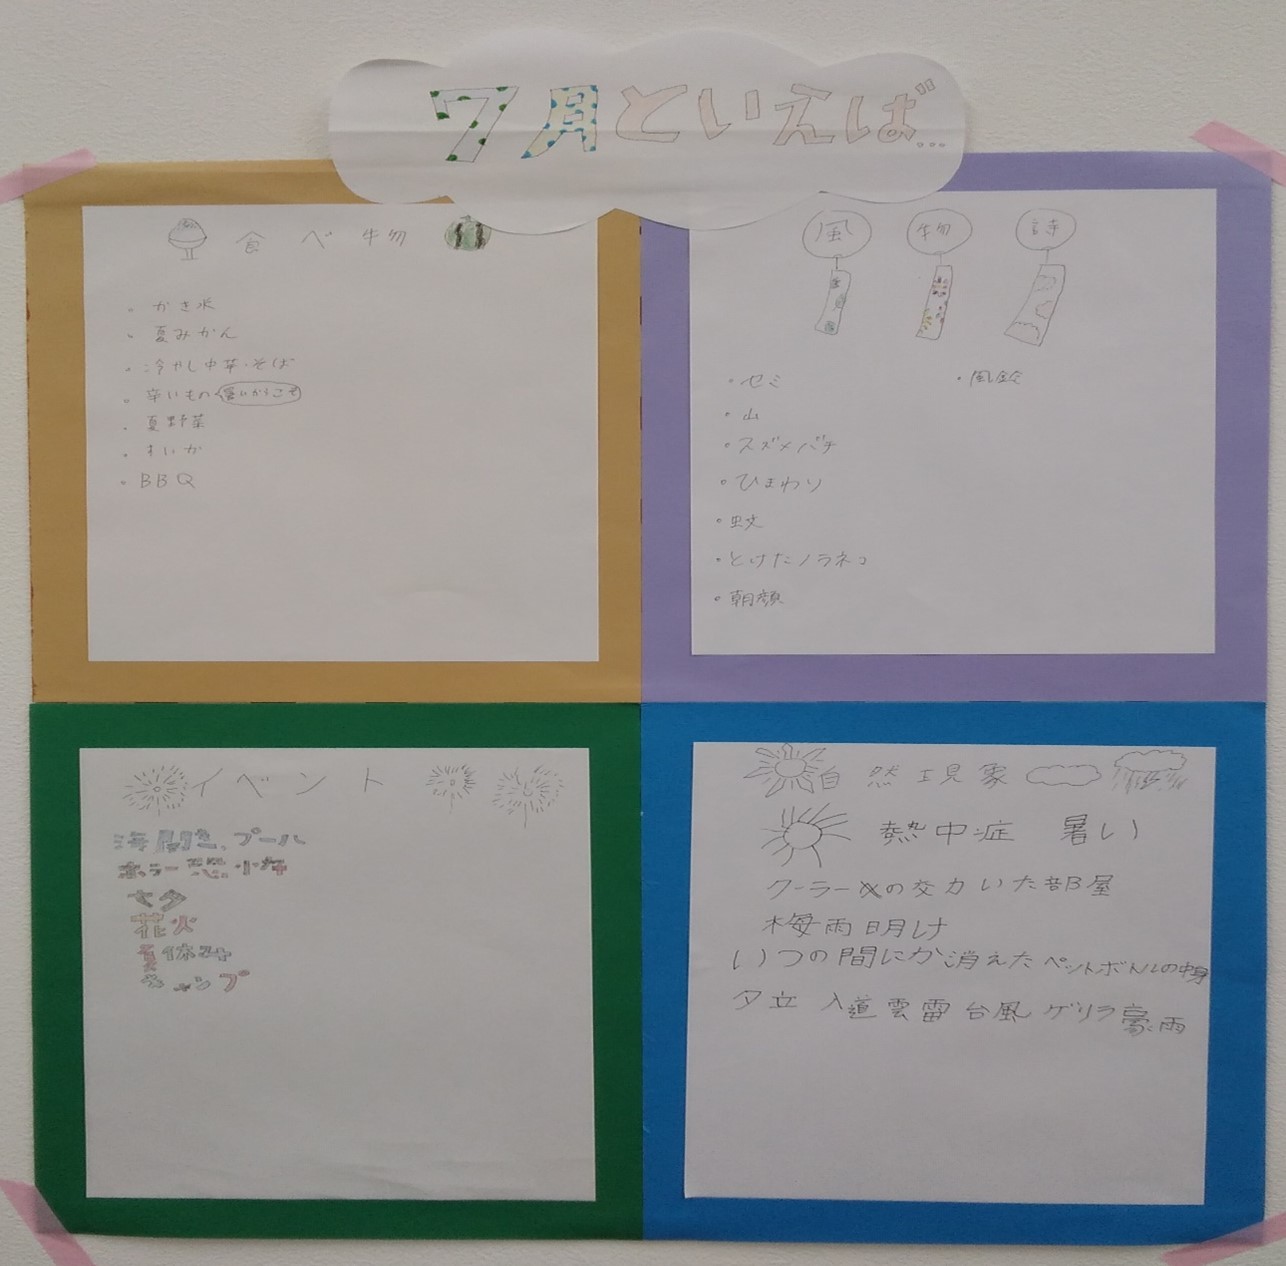 7月といえば…
食べ物
・かき氷
・夏みかん
・冷やし中華・そば
・辛いもの 暑いからこそ
・夏野菜
・すいか
・BBQ
風物詩
・セミ
・山
・スズメバチ
・ひまわり
・蚊
・とけたノラネコ
・朝顔
・風鈴
イベント
海開き、プール
ホラー 恐
七夕
花火
夏休み
キャンプ
自然現象
熱中症 暑い
クーラーの交力いた部屋
梅雨明け
いつの間にか消えたペットボトルの中身
夕立 入道雲 雷 台風 ゲリラ豪雨